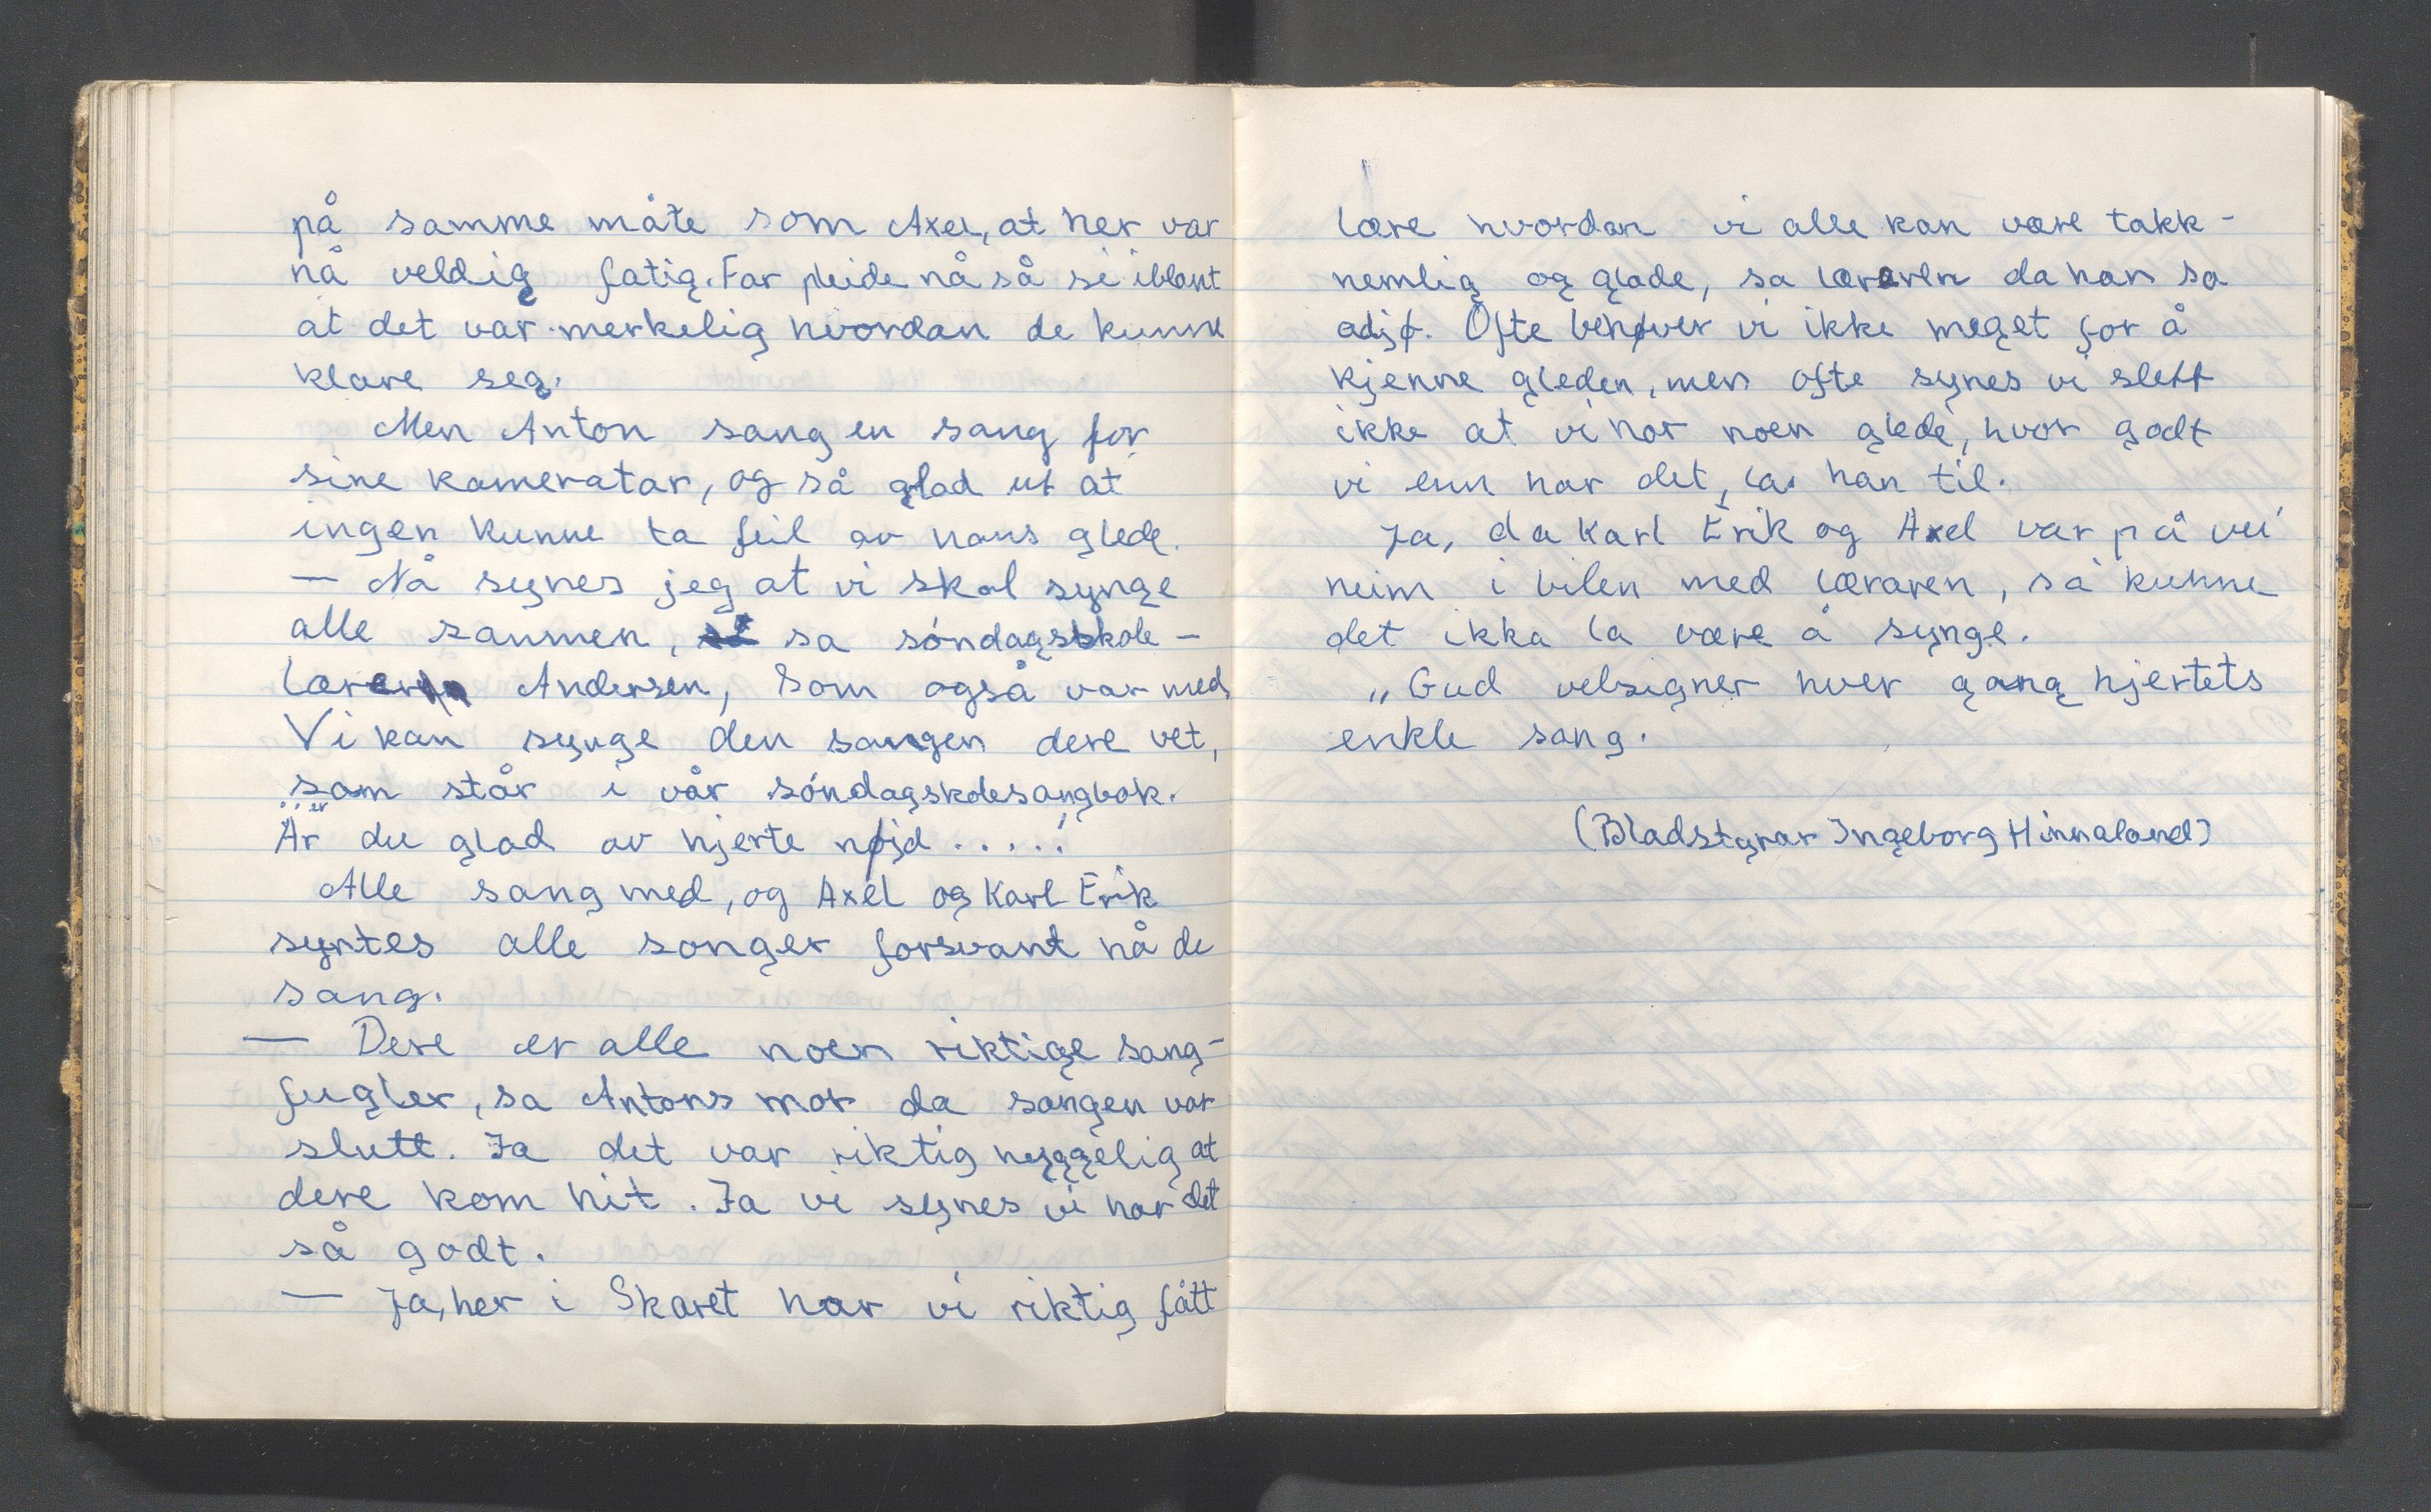 på samme måte som Axel, at her var
nå veldig fatig. Far pleide nå så si iblant
at det var merkelig hvordan de kunne
klare seg.
Men Anton sang en sang for
sine kameratar, og så glad ut at
ingen kunne ta feil av hans glede.
— Nå synes jeg at vi skal synge
alle sammen, sa søndagsskole-
læreren Andersen, som også var med,
Vi kan synge den sangen dere vet,
som står i vår søndagskolesangbok.
er
Är du glad av hjerte nøjd .....!
Alle sang med, og Axel og Karl Erik
syntes alle sorger forsvant nå de
sang.
— Dere er alle noen riktige sang-
fugler, sa Antons mor da sangen var
slutt. Ja det var riktig hyggelig at
dere kom hit. Ja vi synes vi har det
så godt.
— Ja, her i Skaret har vi riktig fått
lære hvordan vi alle kan være takk-
nemlig og glade, sa læraren da han sa
adjø. Ofte behøver vi ikke meget for å
kjenne gleden, men ofte synes vi slett
ikke at vi har noen glede, hvor godt
vi enn har det, la han til.
Ja, da Karl Erik og Axel var på vei
heim i bilen med læraren, så kunne
det ikka la være å synge.
„Gud velsigner hver gang hjertets
enkle sang.
(Bladstyrar Ingeborg Hinnaland)